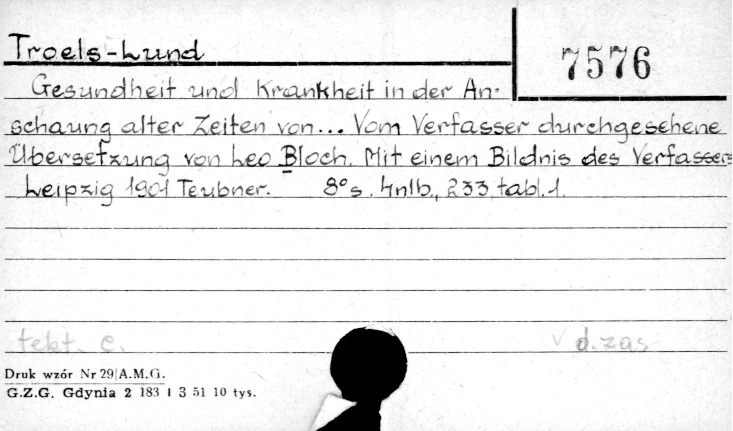 Troels-Lund
7576
Gesundheit und Krankheit in der An-
schaung alter Zeiten von... Vom Verfasser durchgesehene
Übersetzung von Leo Bloch. Mit einem Bildnis des Verfassers
Leipzig 1901 Teubner. 8° s. 4nlb., 233, tabl. 1.
tekt. c. v d. zas
Druk wzór Nr 29/A.M.G.
G.Z.G. Gdynia 2 183 1 3 51 10 tys.